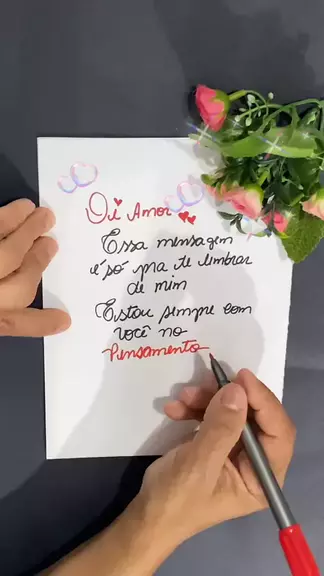 Oi Amor
Essa mensagem
é só pra te lembrar
de mim
Estou sempre com
você no
Pensamento